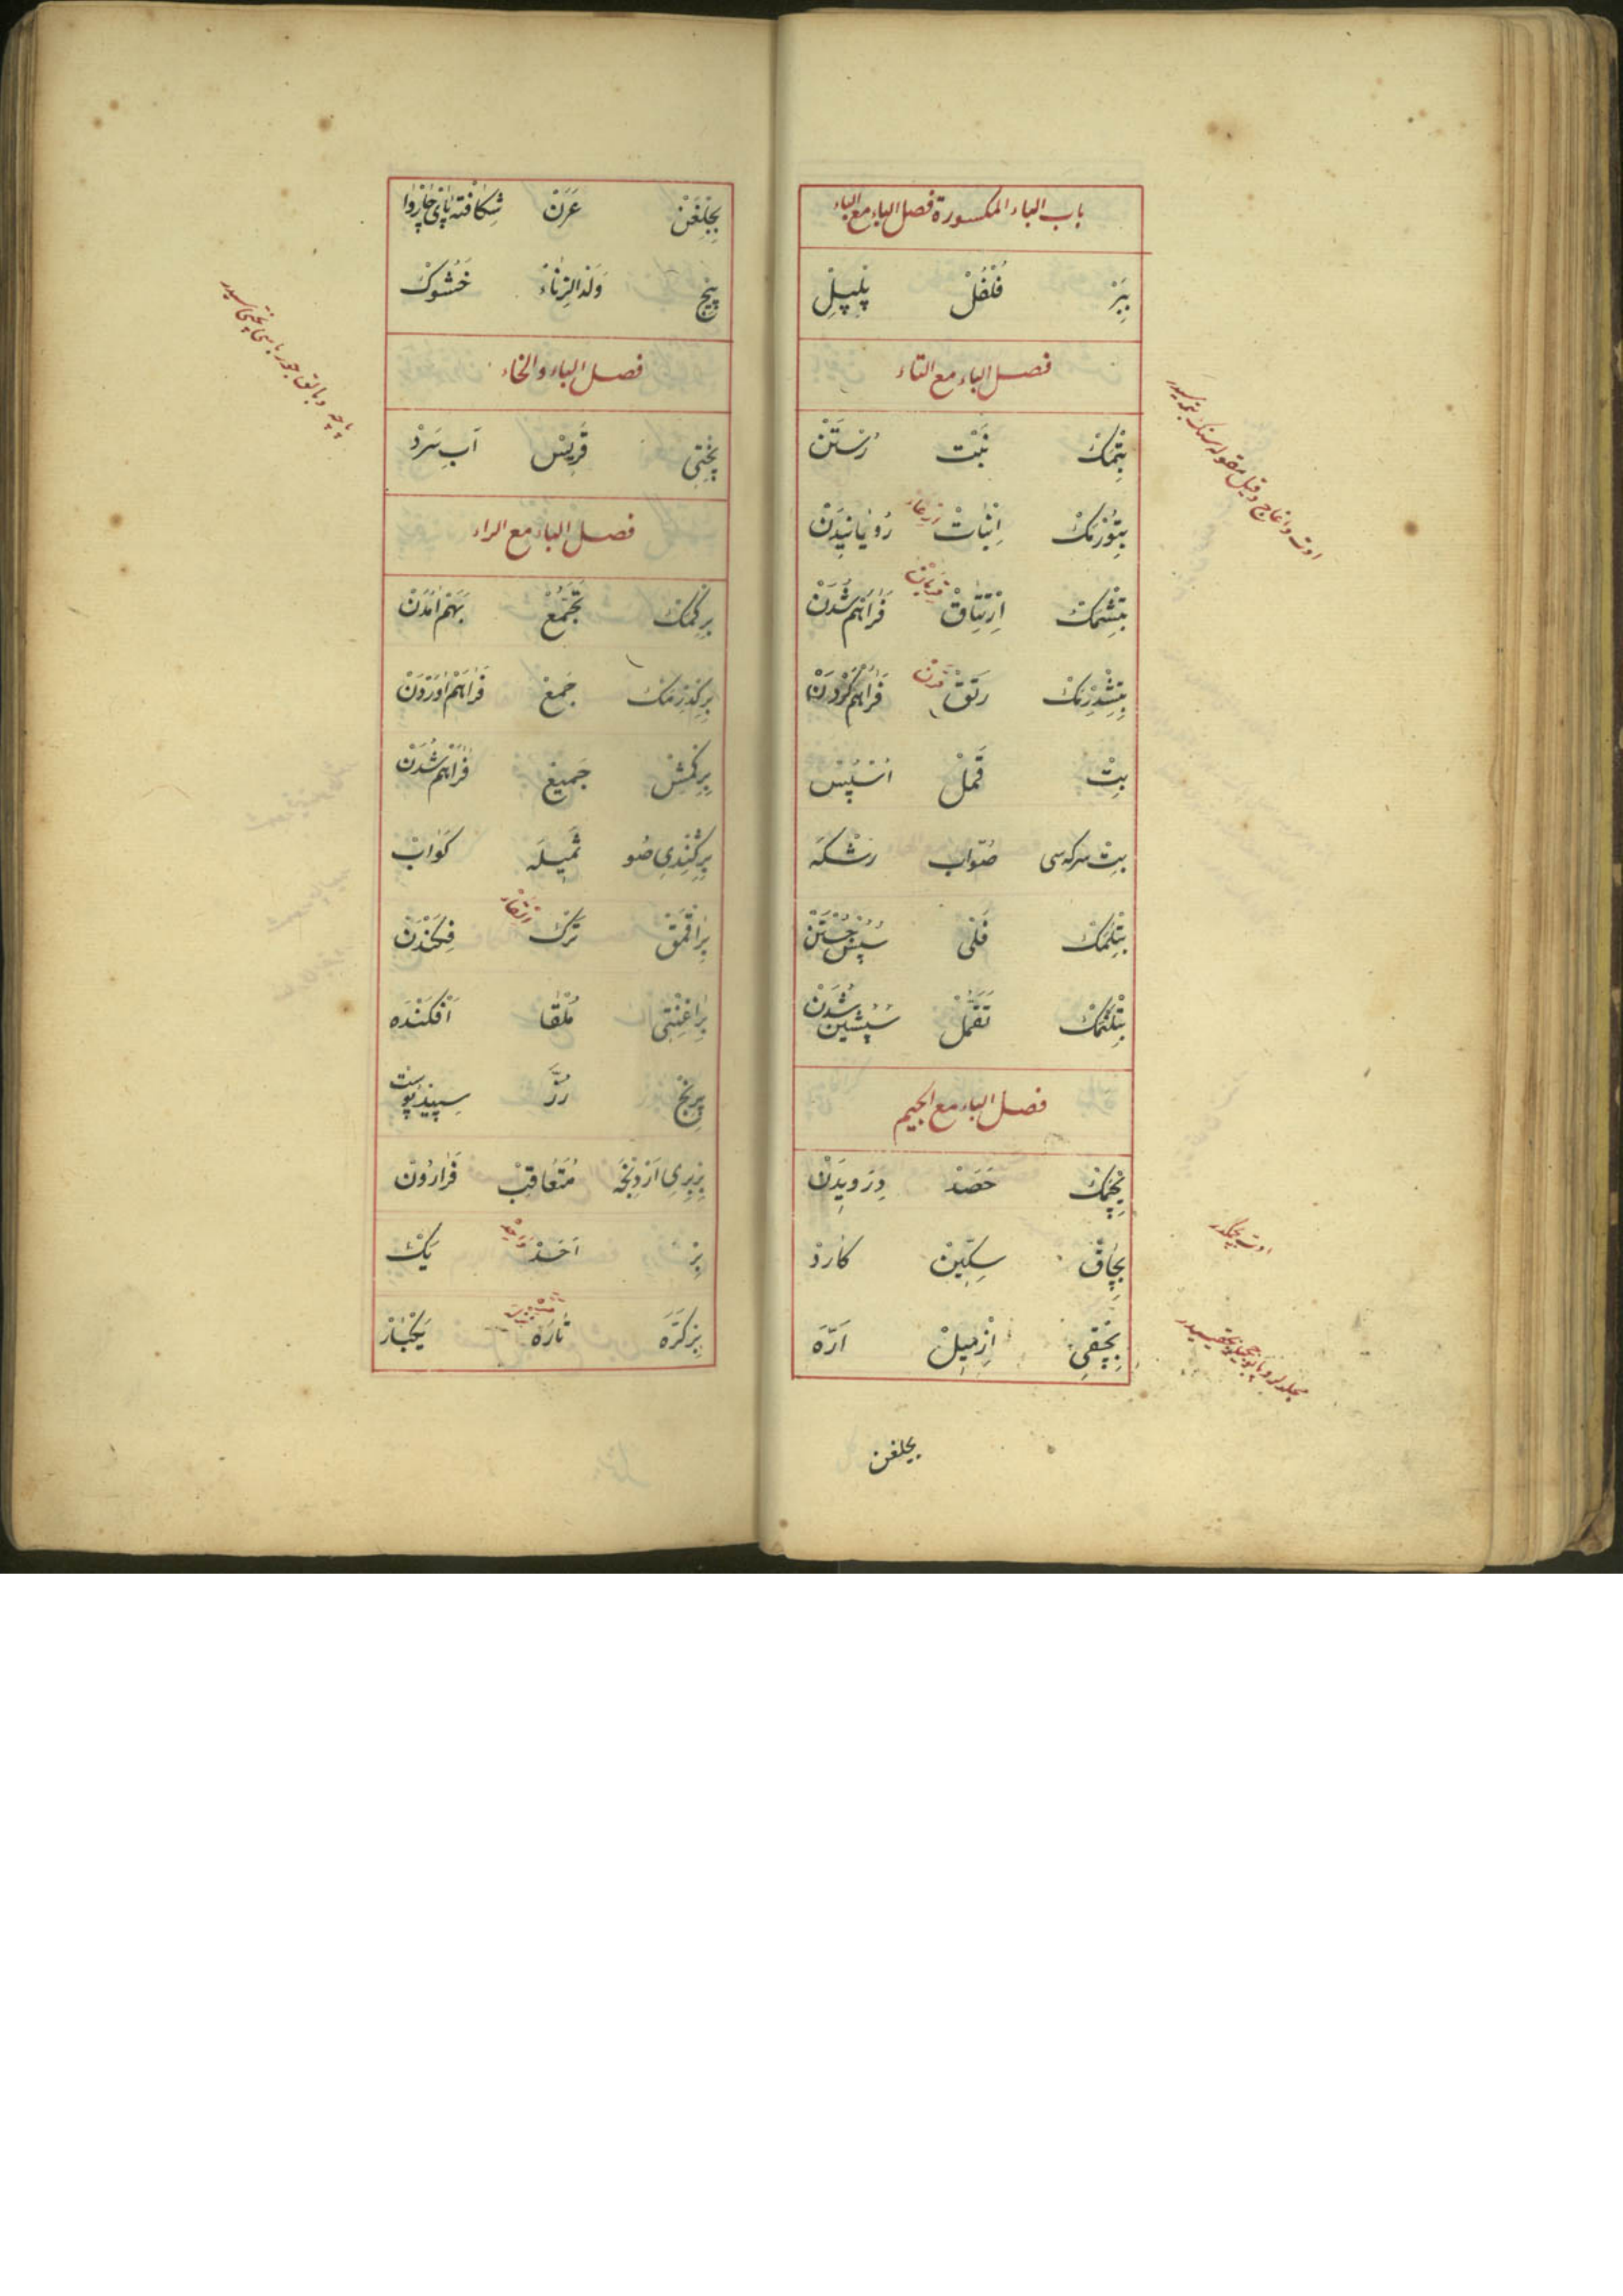 باب الباء المكسورة فصل الباء مع الباء
بِبَرْ فُلْفُلْ پِلْپِلْ
فصل الباء مع التاء
بِتْمَكْ نَبْت رُسْتَنْ
بِتُورْمَكْ اِنْبَاتْ رُويَانِيدَنْ
بِتِشْمَكْ اِرْتِتَاقْ فَرَاهَمْ شُدَنْ
بِتِشْدِرْمَكْ رَتَقْ فَرَاهَمْ كَرْدَنْ
بِتْ قَمْلْ اُسْپُشْ
بِتْ سركه سى صُؤاب رَشْكَه
بِتْلَمَكْ فَلْى سُپُشْ جُسْتَنْ
بِتْلَنْمَكْ تَقَمُّلْ سُپُشِينْ شُدَنْ
فصل الباء مع الجيم
بِچْمَكْ حَصَدْ دِرَوِيدَنْ
بِچَاقْ سِكِّينْ كَارْدْ
بِچْقِى اِزْمِيلْ اَرَّه
بجلغن
بِجِلْغَنْ عَرَنْ شِكَافْتَه پَاىِ چَارْوَا
پِيچ وَلَدُ الزِّنَاءْ خَشُوكْ
فصل الباء والخاء
پِخْتِى قَرِيسْ آبِ سَرْدْ
فصل الباء مع الراء
بِرِكْمَكْ تَجَمُّعْ بَهَمْ آمَدَنْ
بِرِكْدِرْمَكْ جَمْعْ فَرَاهَمْ آوَرْدَنْ
بِرِكْمِشْ جَمِيعْ فَرَاهَمْ شُدَنْ
بِرِكِنْدِى صُو ثَمِيلَه كَوَابْ
بِرَاقْمَقْ تَرْكْ فِكَنْدَنْ
بِرَاغِنْتِى مُلْقَا اَفْكَنْدَه
پِرِنْجْ رُزّ سِپِيدْ پُوسْت
بِرْبِرِى اَرْدِنْجَه مُتَعَاقِبْ فَرَارُونْ
بِرْ اَحَدْ وَاحِدْ يَكْ
بِرْ كَرَّه تَارَه مَرَّة يَكْبَارْ
اوت بچمكدر